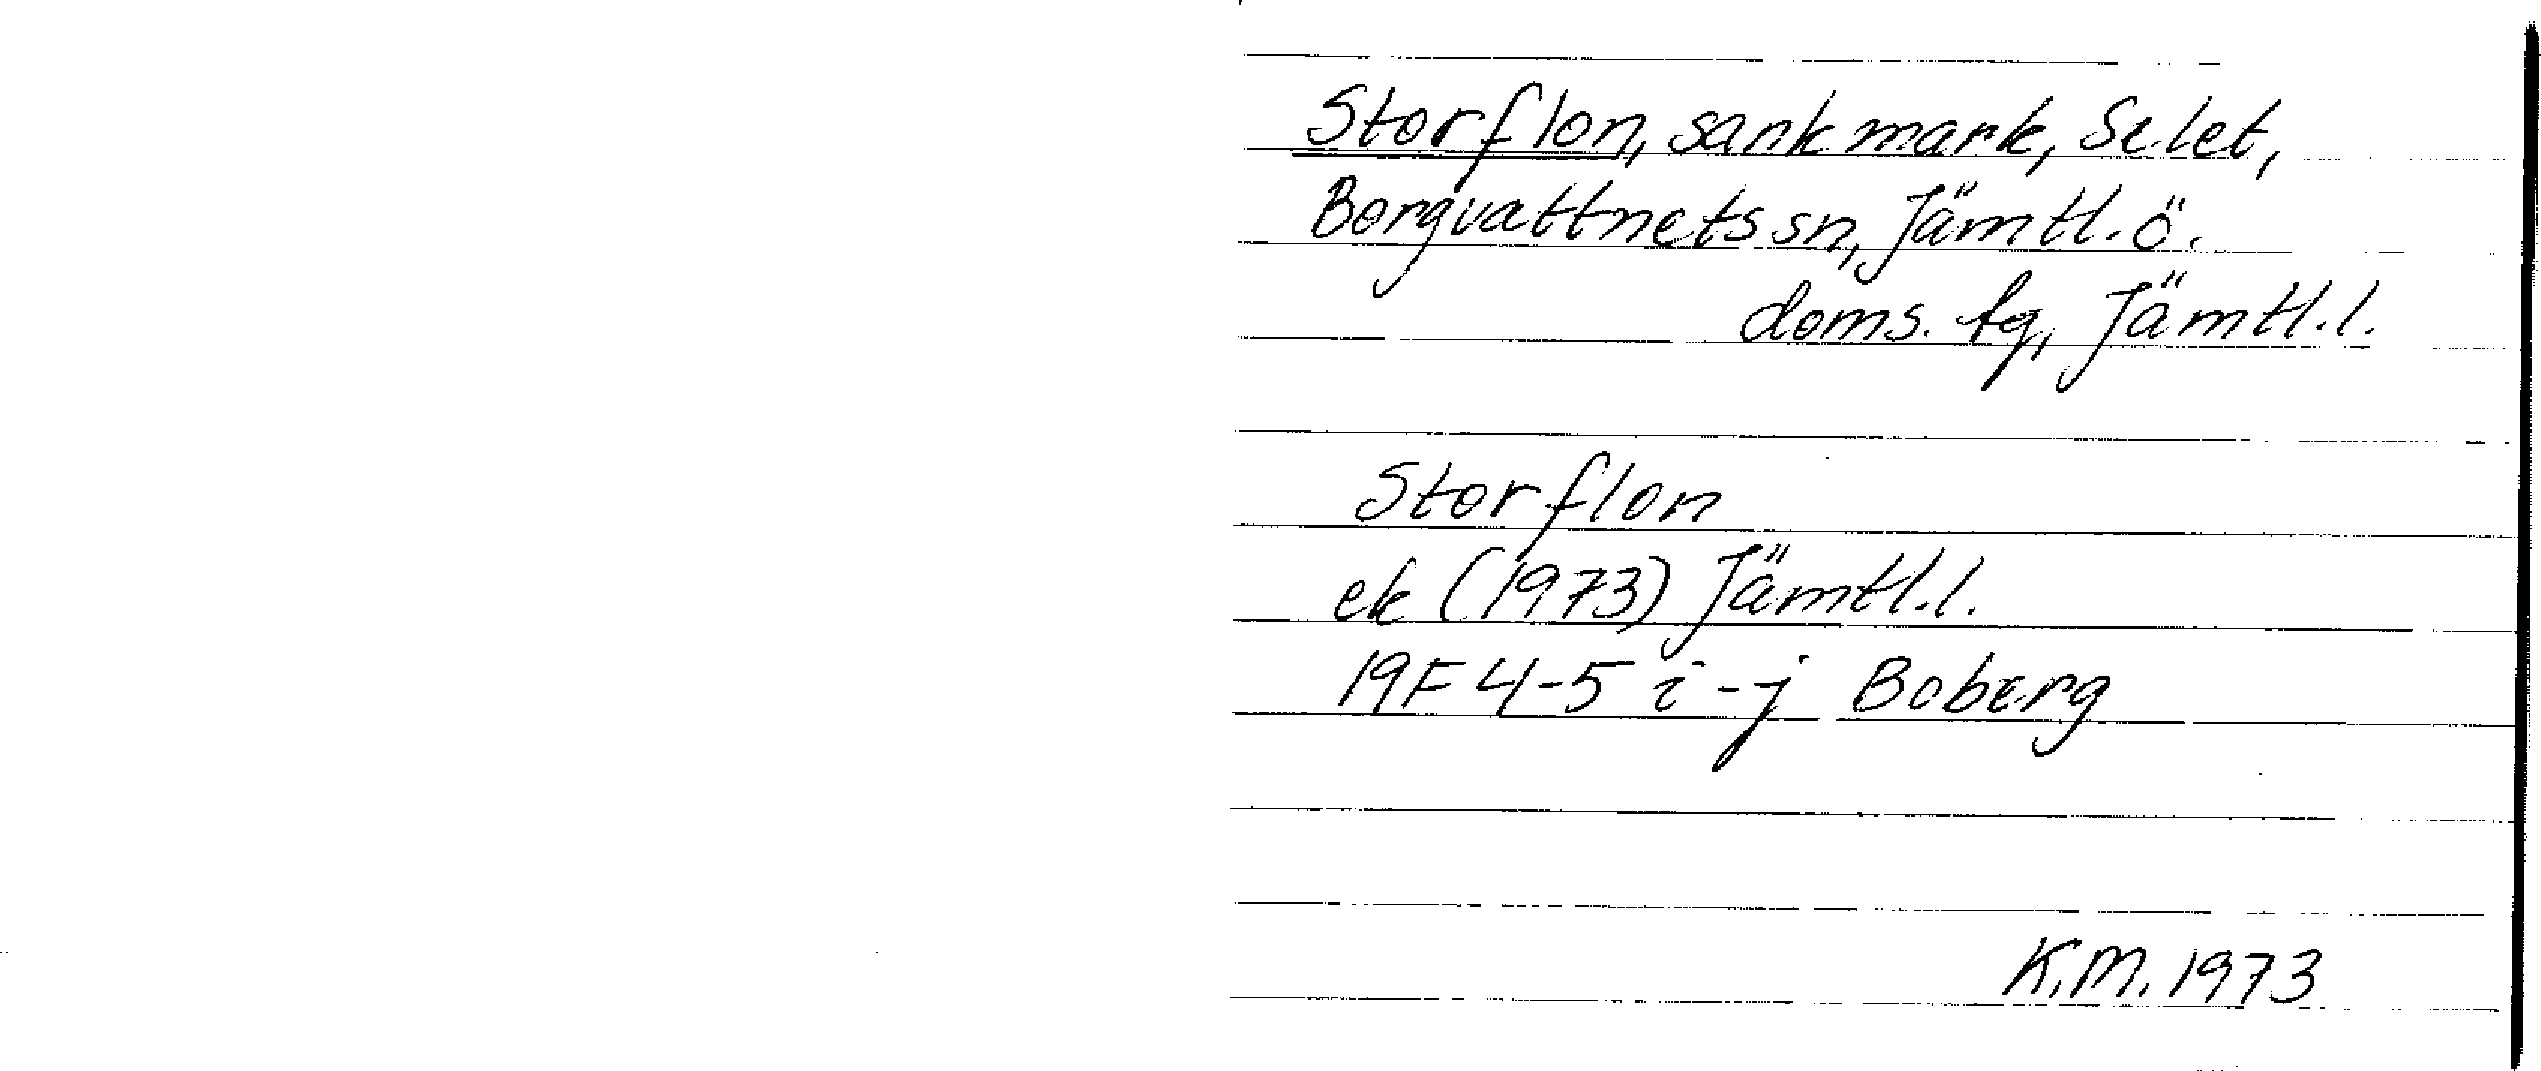 Storflon, sankmark, Selet,
Borgvattnets sn, Jämtl. ö.
doms. fg, Jämtl. l.
Storflon
ek (1973) Jämtl. l.
19F 4-5 i-j Boberg
K.M. 1973